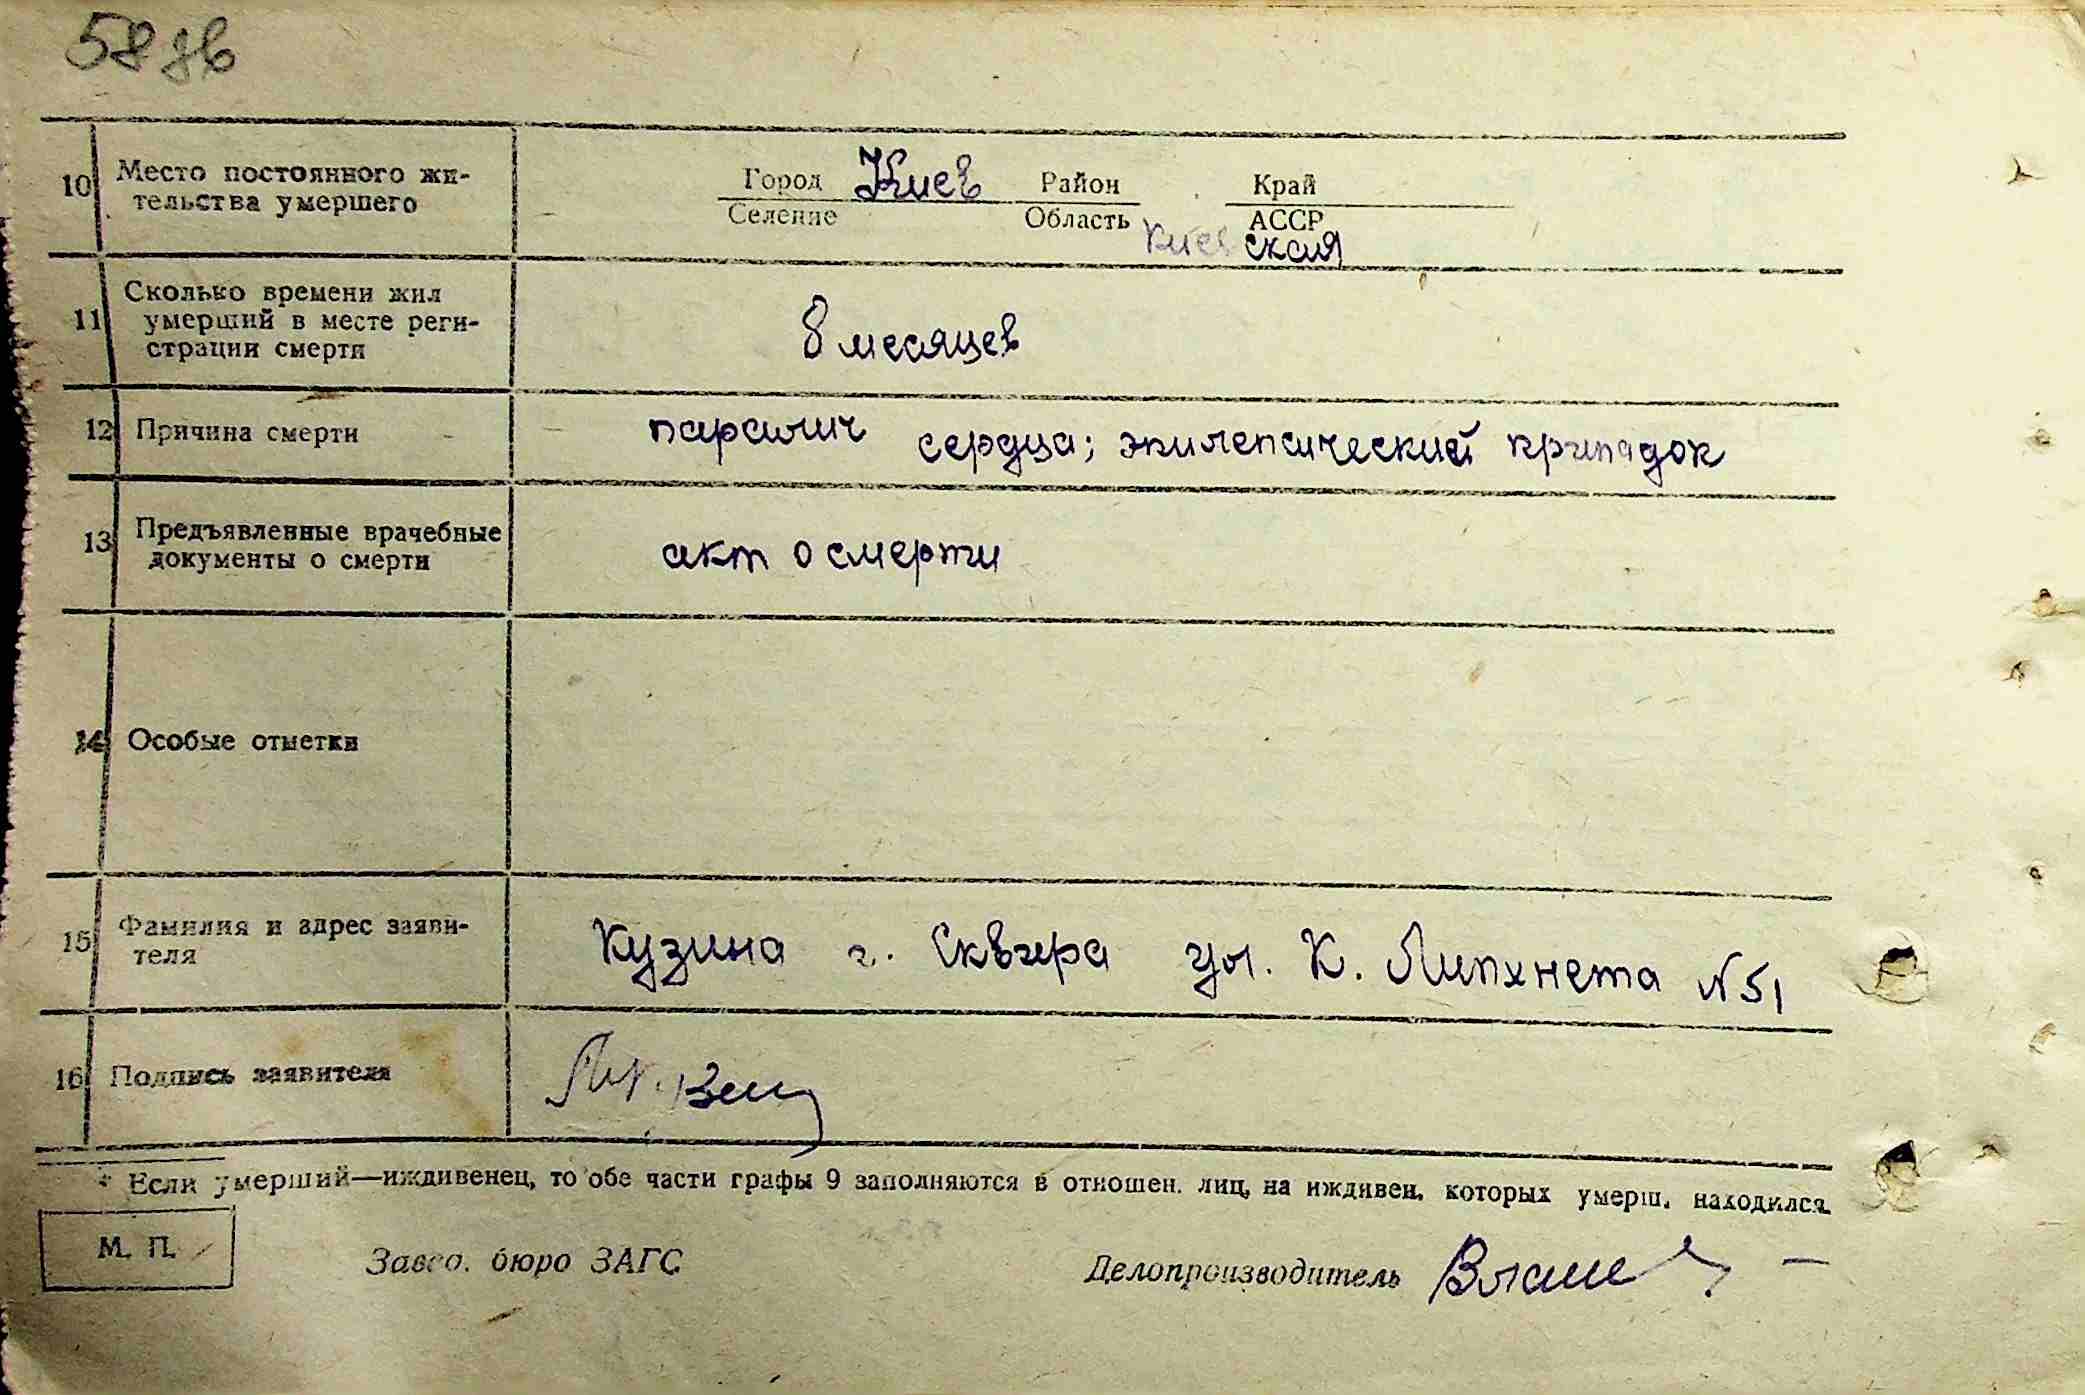 58 зв
10 Место постоянного жи-
тельства умершего
Город Киев Район Край
Селение Область АССР
Киевская
11 Сколько времени жил
умерший в месте реги-
страции смерти
8 месяцев
12 Причина смерти
паралич сердца; эпилепсический припадок
13 Предъявленные врачебные
документы о смерти
акт о смерти
14 Особые отметки
15 Фамилия и адрес заяви-
теля
Кузина г. Сквира ул. К. Липхнета N 51
16 Подпись заявителя
* Если умерший—иждивенец, то обе части графы 9 заполняются в отношен. лиц, на иждивен. которых умерш. находился.
М. П.
Завед. бюро ЗАГС
Делопроизводитель